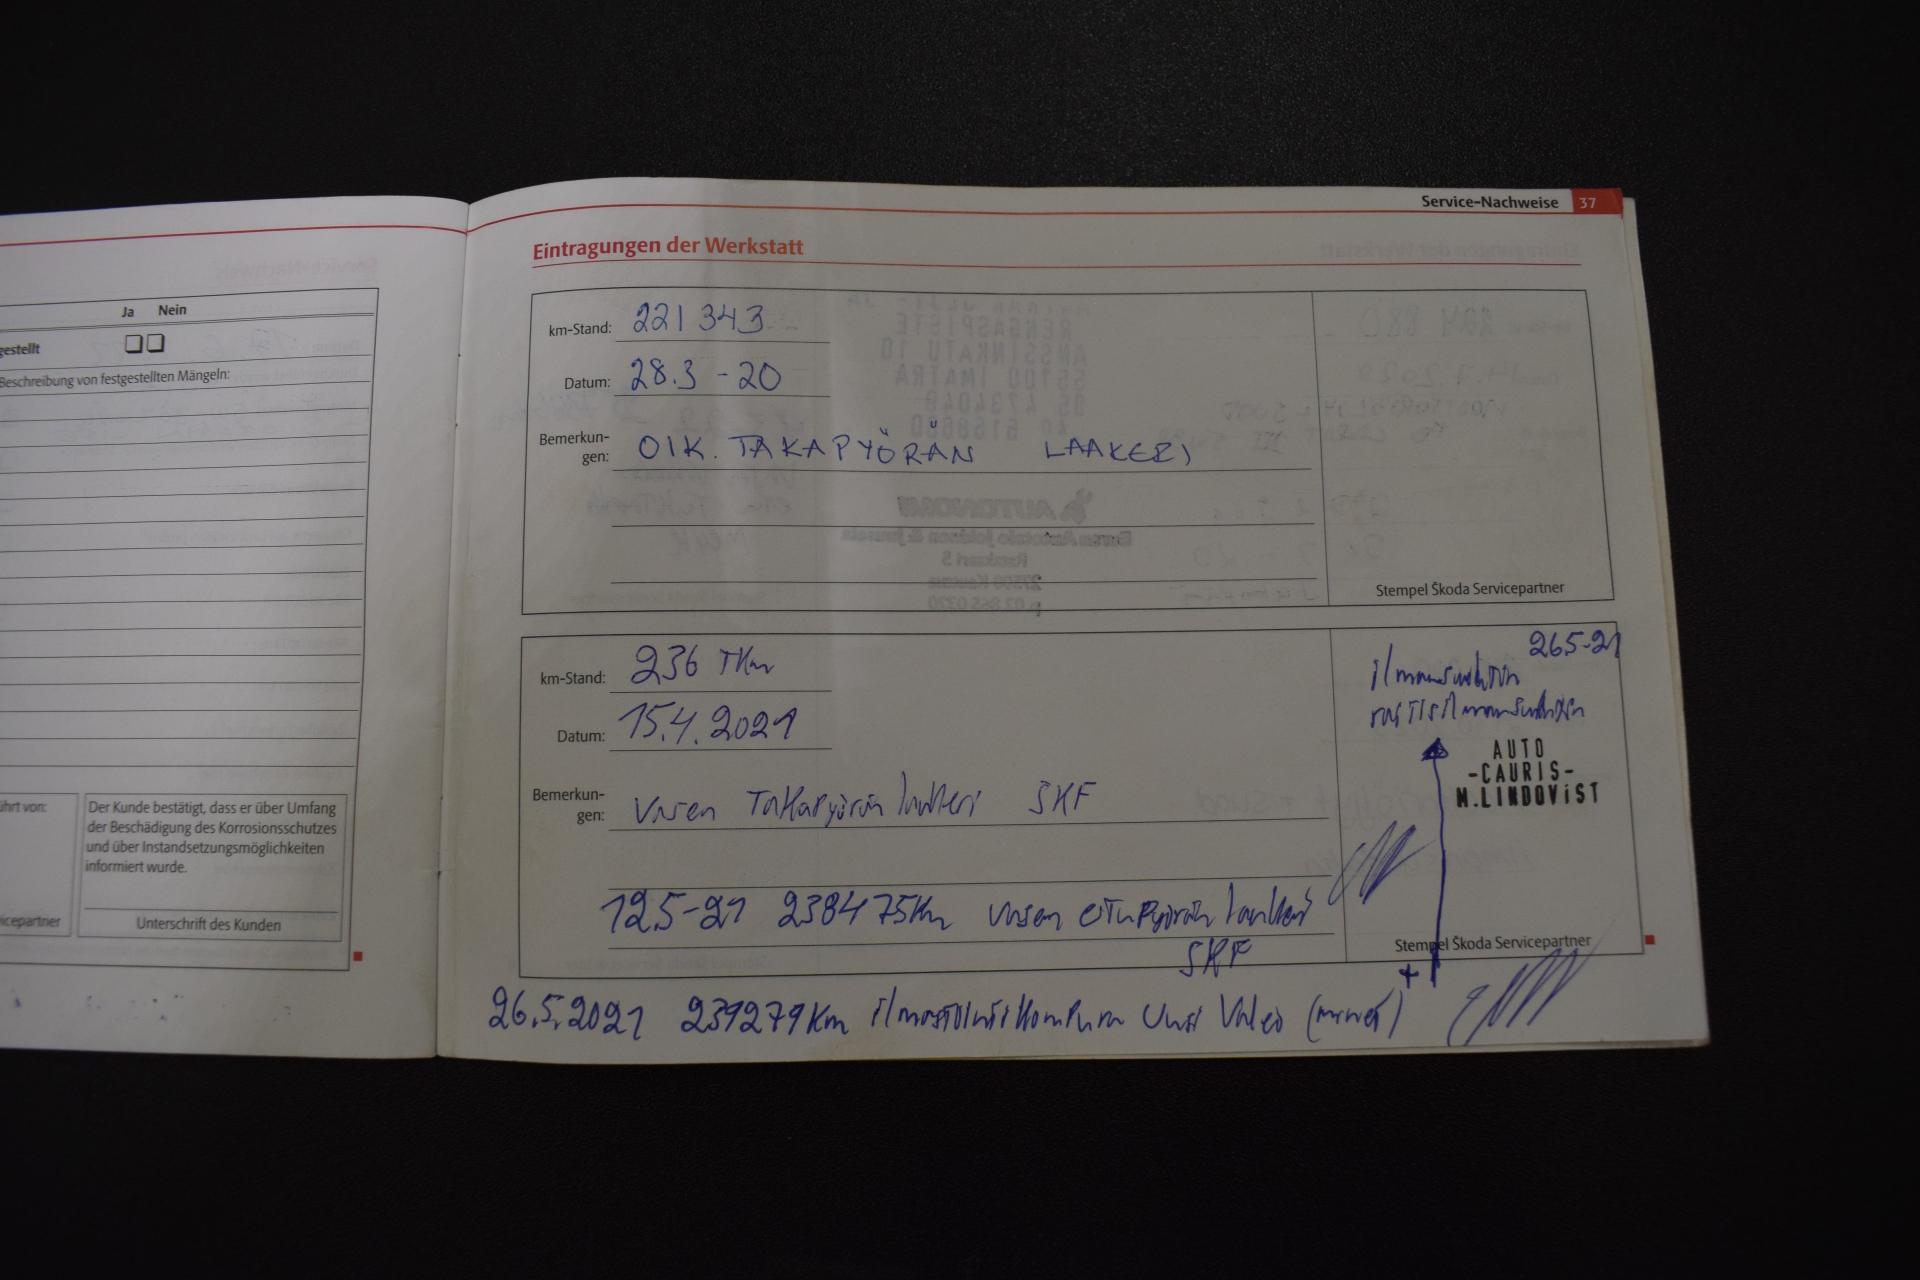 Service-Nachweise 37
Eintragungen der Werkstatt
Ja Nein
gestellt
Beschreibung von festgestellten Mängeln:
ührt von:
Der Kunde bestätigt, dass er über Umfang
der Beschädigung des Korrosionsschutzes
und über Instandsetzungsmöglichkeiten
informiert wurde.
icepartner
Unterschrift des Kunden
km-Stand: 221 343
Datum: 28.3 -20
Bemerkun-
gen: OIK. TAKAPYÖRÄN LAAKERI
Stempel Škoda Servicepartner
km-Stand: 236 TKm
Datum: 15.4.2021
Bemerkun-
gen: Vasen Takapyörän laakeri SKF
12.5-21 238475Km vasen etupyörän laakeri
SKF
26.5-21
ilmansuodatin
AUTO
-CAURIS-
M.LINDQViST
Stempel Škoda Servicepartner
+
26.5.2021 239279Km ilmastointikompura Uusi Valeo